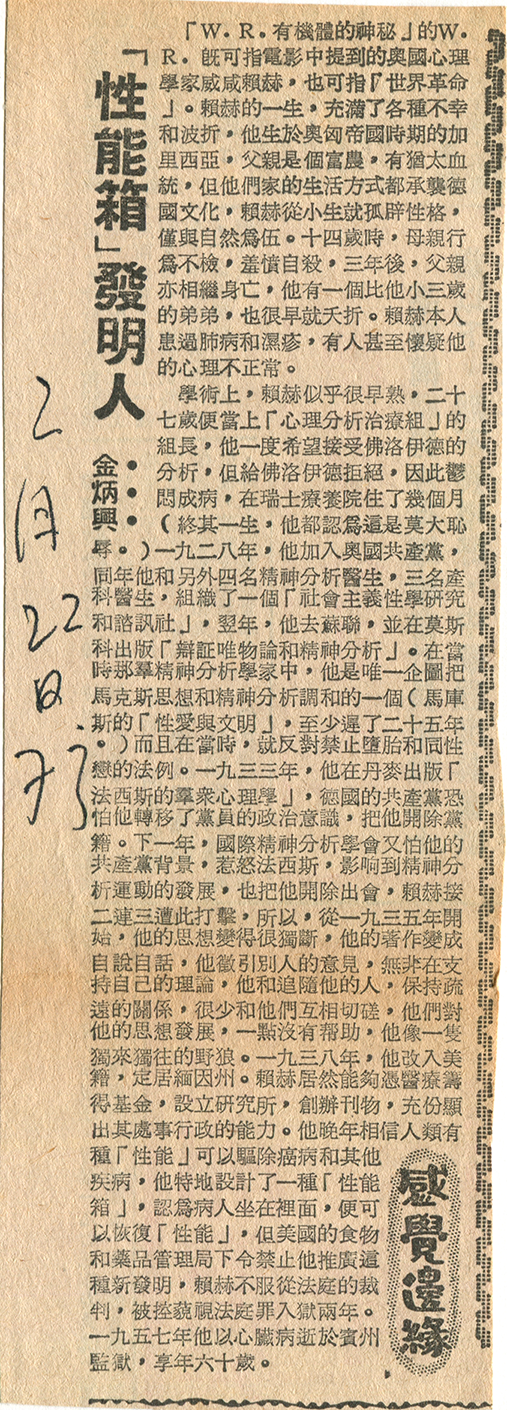 「性能箱」發明人
金炳興
「W．R．有機體的神秘」的W．
R．旣可指電影中提到的奧國心理
學家威咸賴赫，也可指「世界革命
」。賴赫的一生，充滿了各種不幸
和波折，他生於奧匈帝國時期的加
里西亞，父親是個富農，有猶太血
統，但他們家的生活方式都承襲德
國文化，賴赫從小生就孤辟性格，
僅與自然爲伍。十四歲時，母親行
爲不檢，羞憤自殺，三年後，父親
亦相繼身亡，他有一個比他小三歲
的弟弟，也很早就夭折。賴赫本人
患過肺病和濕疹，有人甚至懷疑他
的心理不正常。
學術上，賴赫似乎很早熟，二十
七歲便當上「心理分析治療組」的
組長，他一度希望接受佛洛伊德的
分析，但給佛洛伊德拒絕，因此鬱
悶成病，在瑞士療養院住了幾個月
（終其一生，他都認爲這是莫大恥
辱。）一九二八年，他加入奧國共產黨，
同年他和另外四名精神分析醫生，三名產
科醫生，組織了一個「社會主義性學研究
和諮訊社」，翌年，他去蘇聯，並在莫斯
科出版「辯証唯物論和精神分析」。在當
時那羣精神分析學家中，他是唯一企圖把
馬克斯思想和精神分析調和的一個（馬庫
斯的「性愛與文明」，至少遲了二十五年
。）而且在當時，就反對禁止墮胎和同性
戀的法例。一九三三年，他在丹麥出版「
法西斯的羣衆心理學」，德國的共產黨恐
怕他轉移了黨員的政治意識，把他開除黨
籍。下一年，國際精神分析學會又怕他的
共產黨背景，惹怒法西斯，影响到精神分
析運動的發展，也把他開除出會，賴赫接
二連三遭此打擊，所以，從一九三五年開
始，他的思想變得很獨斷，他的著作變成
自說自話，他徵引別人的意見，無非在支
持自己的理論，他和追隨他的人，保持疏
遠的關係，很少和他們互相切磋，他們對
他的思想發展，一點沒有帮助，他像一隻
獨來獨往的野狼。一九三八年，他改入美
籍，定居緬因州。賴赫居然能夠憑醫療籌
得基金，設立研究所，創辦刊物，充份顯
出其處事行政的能力。他晚年相信人類有
種「性能」可以驅除癌病和其他
疾病，他特地設計了一種「性能
箱」，認爲病人坐在裡面，便可
以恢復「性能」，但美國的食物
和藥品管理局下令禁止他推廣這
種新發明，賴赫不服從法庭的裁
判，被控藐視法庭罪入獄兩年。
一九五七年他以心臟病逝於賓州
監獄，享年六十歲。
感覺邊緣
2月22日